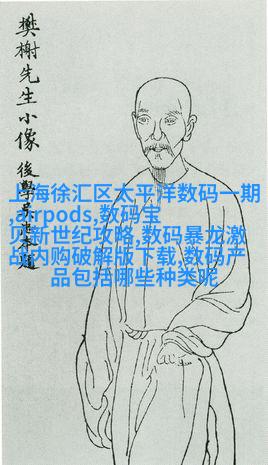 樊榭先生小像
後學
題
上海徐汇区太平洋数码一期
,airpods,数码宝
贝新世纪攻略,数码暴龙激
战内购破解版下载,数码产
品包括哪些种类呢